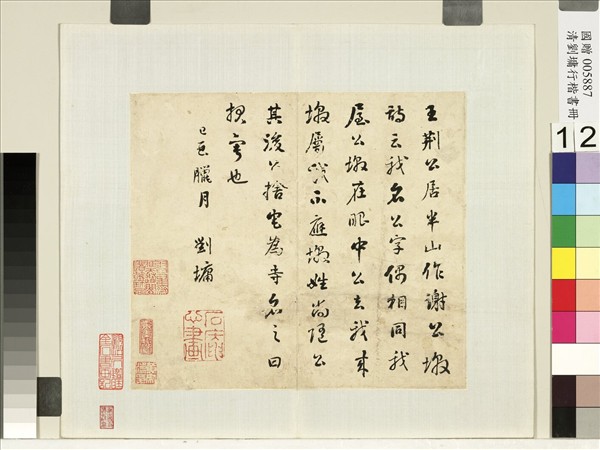 國贈 005887
清劉墉行楷書冊
12
王荆公居半山作謝公墩
詩云我名公字偶相同我
屋公墩在眼中公去我來
墩屬我不應墩姓尚隨公
其後公捨宅為寺名之曰
報寧也
臘月 劉墉